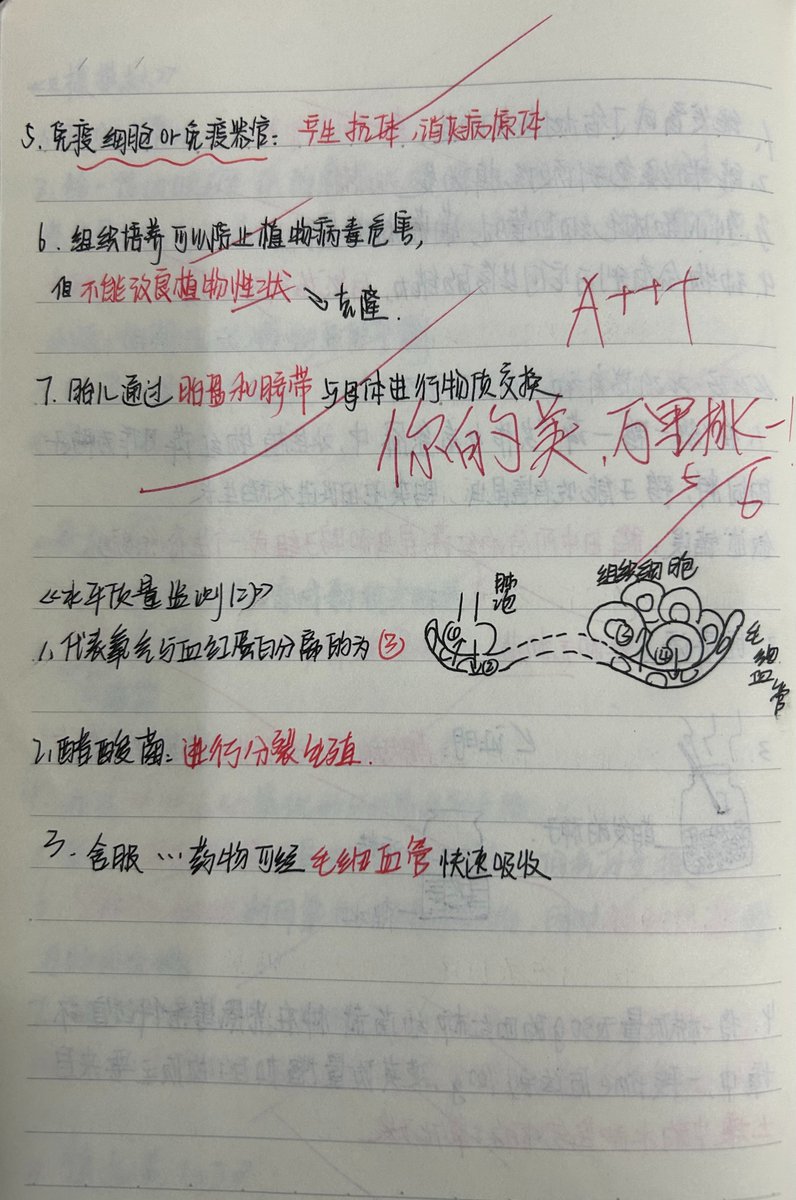 5. 免疫细胞or免疫器官: 产生抗体,消灭病原体
6. 组织培养可以防止植物病毒危害,
但不能改良植物性状 克隆.
A+++
7. 胎儿通过胎盘和脐带与母体进行物质交换
你的美,万里挑一
5/6
《水平质量监测(2)》
1. 代表氧气与血红蛋白分离的为③
肺泡
① ②
组织细胞
③ ④
毛细血管
2. 醋酸菌: 进行分裂生殖.
3. 含服…药物可经毛细血管快速吸收